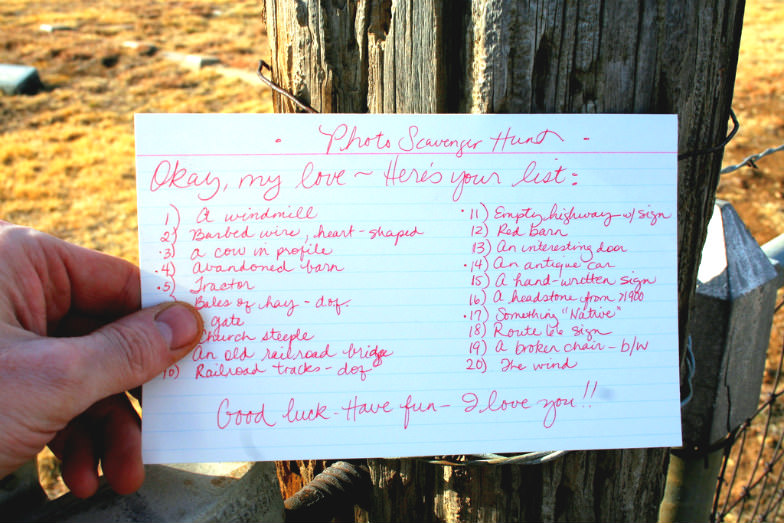 · Photo Scavenger Hunt -
Okay, my love ~ Here's your list:
1) A windmill
2) Barbed wire, heart-shaped
·3) a cow in profile
·4) Abandoned barn
·5) Tractor
Bales of hay - dof.
gate
Church steeple
An old railroad bridge
10) Railroad tracks - dof
·11) Empty highway w/ sign
12) Red Barn
13) An interesting door
·14) An antique car
15) A hand-written sign
16) A headstone from >1900
·17) Something "Native"
18) Route 66 sign
19) A broken chair - b/w
20) The wind
Good luck - Have fun - I love you!!